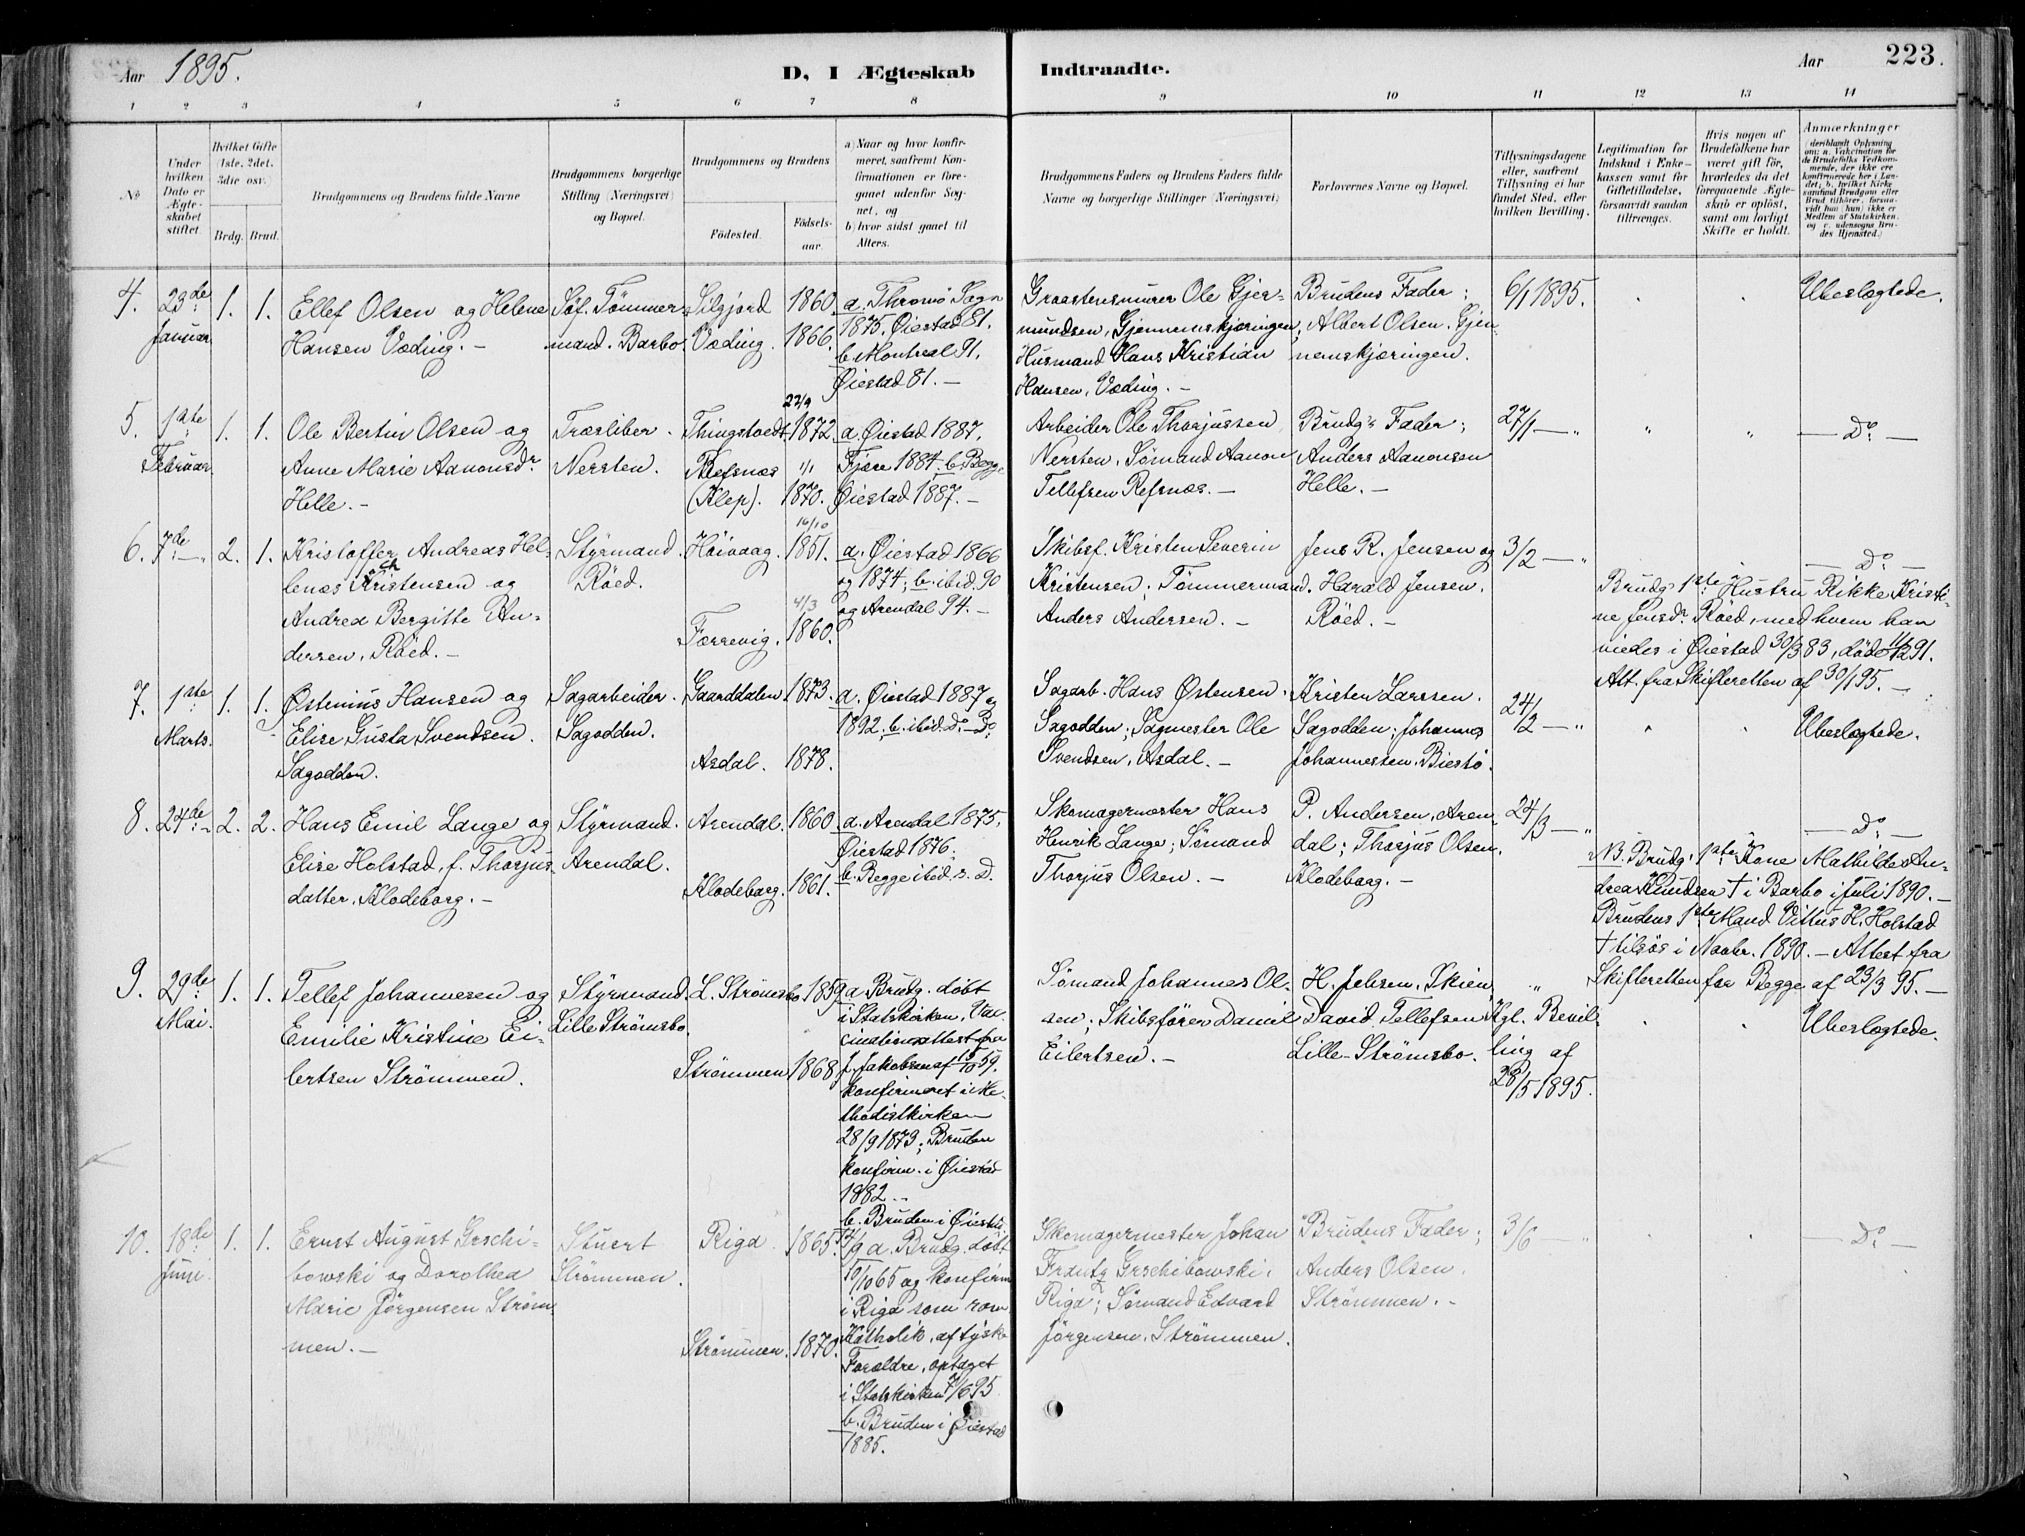 Aar 1895. D, I Ægteskab Indtraadte. Aar 223.
1 2 3 4 5 6 7 8 9 10 11 12 13 14
No
Under hvilken Dato er Ægteskabet stiftet.
Hvilket Gifte 1ste, 2det, 3die osv.
Brdg. Brud.
Brudgommens og Brudens fulde Navne
Brudgommens borgerlige Stilling (Næringsvei) og Bopæl.
Brudgommens og Brudens
Fødested.
Fødselsaar.
a) Naar og hvor konfirmeret, saafremt Konfirmationen er foregaaet udenfor Sognet, og
b) hvor sidst gaaet til Alters.
Brudgommens Faders og Brudens Faders fulde Navne og borgerlige Stillinger (Næringsvei)
Forlovernes Navne og Bopæl.
Tillysningsdagene eller, saafremt Tillysning ei har fundet Sted, efter hvilken Bevilling.
Legitimation for Indskud i Enkekassen samt for Giftetilladelse, forsaavidt saadan tiltrænges.
Hvis nogen af Brudefolkene har været gift før, hvorledes da det foregaaende Ægteskab er opløst, samt om lovligt Skifte er holdt.
Anmærkninger
(deriblandt Oplysning om: a. Vakcination for de Brudefolks Vedkommende, der ikke ere konfirmerede her i Landet; b. hvilket Kirkesamfund Brudgom eller Brud tilhører, forsaavidt han (hun) ikke er Medlem af Statskirken, og c. udensogns Brudes Hjemsted.)
4. 23de Januar 1. 1.
Ellef Olsen og Helene
Hansen Væding. -
Søf. Tømmermand. Barbo
Silgjord 1860.
Væding. 1866.
a. Thromø Sogn
1875, Øiestad 81.
b. Montreal 91,
Øiestad 81. -
Graastensmurer Ole Gjermundsen, Gjennemskjæringen;
Husmand Hans Kristian
Hansen, Væding. -
Brudens Fader;
Albert Olsen, Gjennemskjæringen.
6/1 1895.
Ubeslægtede.
5. 1ste Februar 1. 1.
Ole Bertin Olsen og
Anne Marie Aanonsdr
Helle. -
Træsliber.
Nersten.
Thingstvedt 22/9 1872.
Refsnæs
(Klep). 1/1 1870.
a. Øiestad 1887,
Fjære 1884. b. Begge
Øiestad 1887. -
Arbeider Ole Thorjussen
Nersten. Sømand Aanon
Tellefsen Refsnæs. -
Brudgs Fader;
Anders Aanonsen
Helle. -
27/1 - "
- Do -
6. 7de - 2. 1.
Kristoffer Andreas Hellenæs Kristensen og
Andrea Bergitte Andersen, Röed. -
Styrmand.
Röed.
Höivaag. 16/10 1851.
Færrevig. 4/3 1860.
a. Øiestad 1866
og 1874; b. ibid. 90
og Arendal 94. -
Skibsf. Kristen Severin
Kristensen; Tømmermand
Anders Andersen. -
Jens R. Jensen og
Harald Jensen.
Röed. -
3/2 - "
- Do -
Brudgs 1ste Hustru Rikke Kristine Jensdr Röed, med hvem han
viedes i Øiestad 30/3 83, død 11/2 91.
Att. fra Skifteretten af 30/1 95. -
7. 1ste Marts. 1. 1.
Østenius Hansen og
Elise Gusta Svendsen.
Sagodden.
Sagarbeider.
Sagodden.
Gaarddalen. 1873.
Asdal. 1878.
a. Øiestad 1887 og
1892, b. ibid. Do - Do.
Sagarb. Hans Østensen.
Sagodden; Sagmester Ole
Svendsen, Asdal. -
Kristen Larssen.
Sagodden; Johannes
Johannessen, Biestø.
24/2 - "
Ubeslægtede.
8. 24de - 2. 2.
Hans Emil Lange og
Elise Holstad, f. Thorjusdatter, Klodeborg. -
Styrmand.
Arendal.
Arendal. 1860.
Klodeborg. 1861.
a. Arendal 1875,
Øiestad 1876.
b. Begge ibid. s. D.
Skomagermester Hans
Henrik Lange; Sømand
Thorjus Olsen. -
P. Andersen, Arendal; Thorjus Olsen,
Klodeborg. -
24/3 - "
- Do -
NB. Brudgs 1ste Kone Mathilde Andrea Knudsen † i Barbo i Juli 1890. -
Brudens 1ste Mand Vittus H. Holstad
† tilsøs i Novbr. 1890. - Attest fra
Skifteretten for Begge af 23/3 95. -
9. 29de Mai. 1. 1.
Tellef Johannesen og
Emilie Kristine Eilertsen Strömmen.
Styrmand.
Lille Strömsbo.
L. Strömsbo 1859
Strömmen 1868
a. Brudg. døbt
i Statskirken, Vaccinationsattest fra
J. Jakobsen af 15/10 59.
Konfirmeret i Methodistkirken
28/9 1873; Bruden
konfirm. i Øiestad
1882. -
b. Bruden i Øiestad
Sømand Johannes Olsen; Skibsfører Daniel
Eilertsen. -
H. Jebsen, Skien,
David Tellefsen
Lille-Strömsbo.
" Kgl. Bevilling af
28/5 1895.
Ubeslægtede.
10. 18de Juni. 1. 1.
Ernst August Grschibowski og Dorothea
Marie Jörgensen Strömmen. -
Stuert
Strömmen.
Riga. 1865.
Strömmen. 1870.
a. Brudg. døbt
10/10 65 og konfirm.
i Riga som rom.
Katholik, af tyske
Forældre, optaget
i Statskirken 7/6 95
b. Bruden i Øiestad
1885.
Skomagermester Johan
Frantz Grschibowski,
Riga; Sømand Edvard
Jörgensen. Strömmen.
Brudens Fader;
Anders Olsen.
Strömmen. -
3/6 "
- Do -